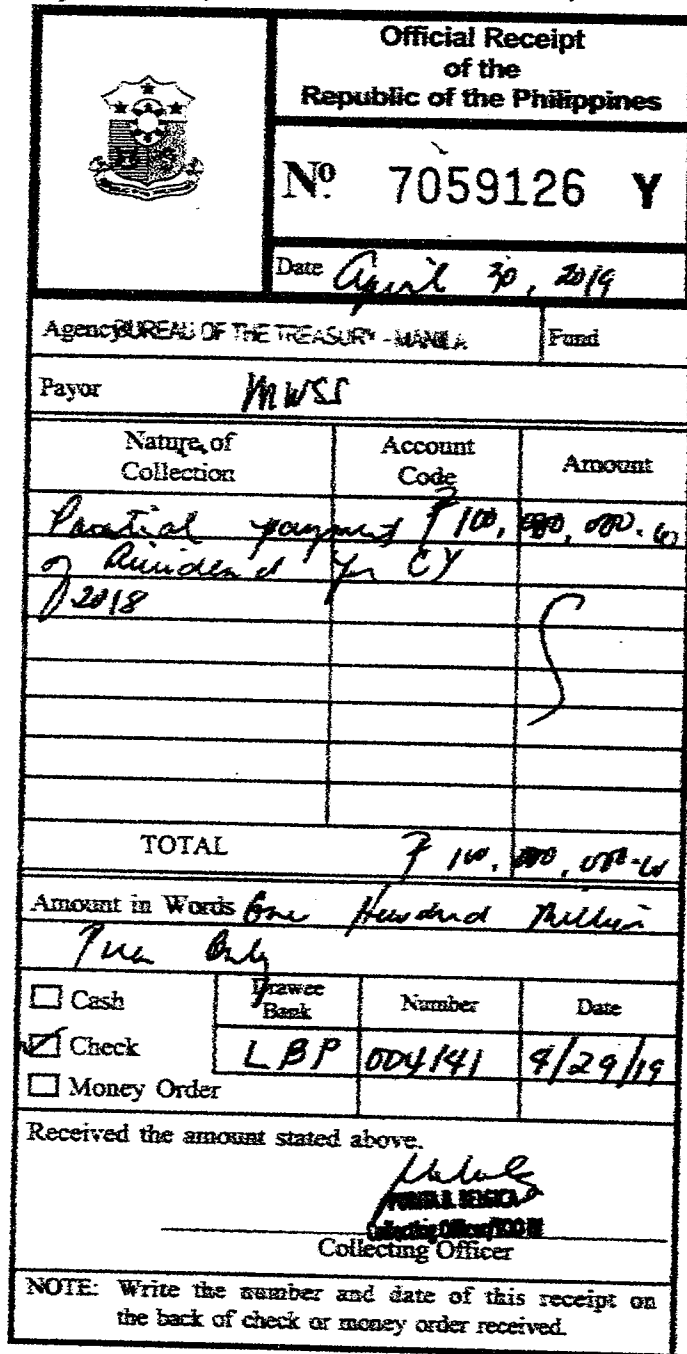 Official Receipt
of the
Republic of the Philippines
Nº 7059126 Y
Date April 30, 2019
Agency BUREAU OF THE TREASURY - MANILA Fund
Payor MWSS
Nature of Collection Account Code Amount
Partial payment ₱ 100, 000, 000.00
of Dividend for CY
2018
TOTAL ₱ 100, 000, 000.00
Amount in Words One Hundred Million
Only
Cash Drawee Bank Number Date
Check LBP 004141 4/29/19
Money Order
Received the amount stated above.
BELGICA
Collecting Officer
Collecting Officer
NOTE: Write the number and date of this receipt on
the back of check or money order received.